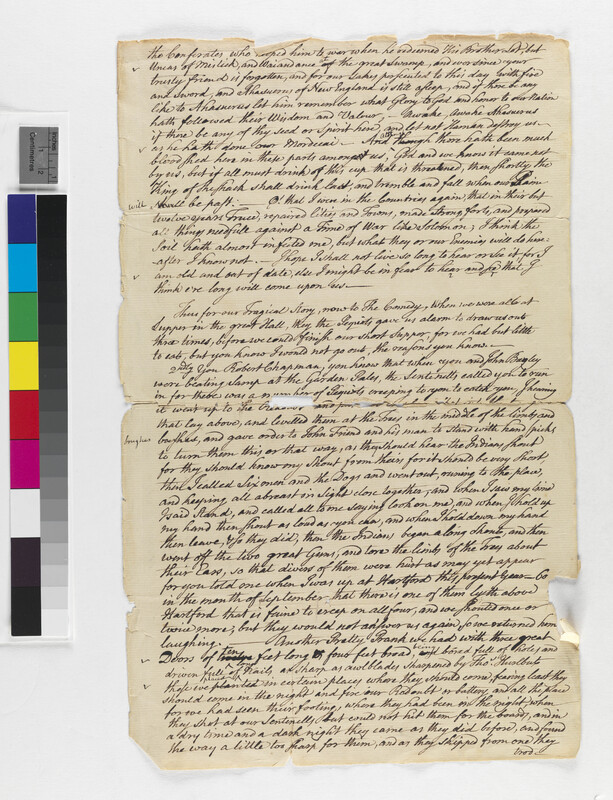 the Conferates, who rasped him to war when he redeemed His Brother Lot, but
Uncas of Mistick, and Waiandance of the great Swamp, and ever since your
trusty friend is forgotten, and for our Sakes persecuted to this day with fire
and Sword, and Ahasuerus of New England is still asleep, and if there be any
like to Ahasuerus let him remember what Glory to God and honor to our Nation
hath followed their Wisdom and Valour, Awake, Awake Ahasuerus
if there be any of thy seed or Spirit here, and let not Haman destroy us
as he hath done our Mordecai. — And although there hath been much
blood shed here in these parts amongst us, God and we know it came not
by us, but if all must drink of this cup that is threatened, then shortly the
King of Sheshack shall drink last, and tremble and fall when our Pain
will be past: — O! that I were in the Countries again, that in their but
will
twelve years Truce, repaired Cities and Towns, made strong forts, and prepared
all things needfull against a Time of War like Solomon; I think the
Soil hath almost infected me, but what they or our Enemies will do here-
after I know not. — I hope I shall not live so long to hear or see it for I
am old and out of date, else I might be in fear to hear and see that I
think e're long will come upon us —
Thus for our Tragical Story, now to The Comedy, When we were all at
Supper in the great Hall, they the Pequits gave us alarm to draw us out
three times, before we could finish our short Supper, for we had but little
to eat, but you know I would not go out, the reasons you know. —
2ndly You Robert Chapman, you know that when you and John Bagley
were beating Samp at the Garden Pales, the Sentinells called you to run
in for there was a number of Pequits creeping to you to catch you, I hearing
it went up to the Redoubt and put
that lay above, and levelled them at the Trees in the middle of the limbs and
boughes
boughes, and gave order to John Friend and his man to stand with hand spicks
to turn them this or that way, as they should hear the Indians shout
for they should know my Shout from theirs for it should be very Short
then I called Six men and the Dogs and went out, running to the place,
and keeping all abreast in Sight close together; and when I saw my time
I said Stand, and called all to me saying look on me, and when I hold up
my hand then shout as loud as you can, and when I hold down my hand
then leave, & so they did; then the Indians began a long shout, and then
went off the two great Guns, and tore the limbs of the Trees about
their Ears, so that divers of them were hurt as may yet appear
for you told one when I was up at Hartford this present year — 60
in the month of September that there is one of them lyeth above
Hartford that is faine to creep on all four; and we shouted once or
twice more; but they would not answer us again, so we returned home
laughing. — Another Pretty Prank we had with three great
Doors of ten feet long & four feet broad, being bored full of holes and
driven full of long Nails as Sharp as awl blades Sharpened by Thos Hurlbut
these we placed in certain places where they should come, fearing least they
should come in the night and fire our Redoubt or battery, and all the place
for we had seen their footing, where they had been in the night, when
they shot at our Sentinells but could not hit them for the boards, and in
a dry time and a dark night they came as they did before, and found
the way a little too sharp for them, and as they Skipped from one they
trod